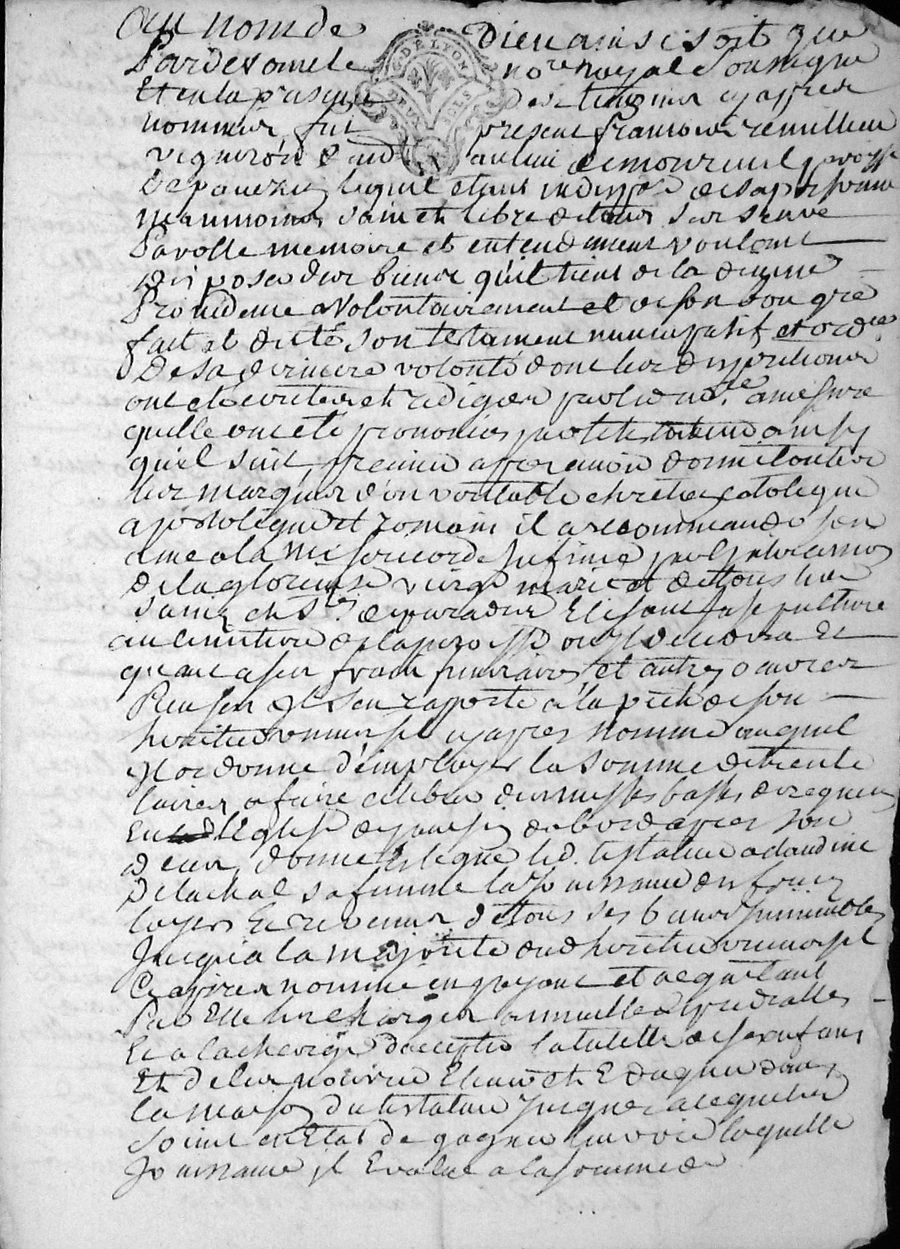 Au nom de Dieu ainsi soit que
Pardevant le no.re royal soussigne
Et en la presence des temoins cy apres
nommes fut present francois remillieu
vigneron de mourieul paroisse
de lequel etant indispose de sa personne
neanmoins sain et libre de tous ses sens
parolle memoire et entendement voulant
disposer des biens qu'il tient de la divine
Providence a volontairement et de son bon gré
fait et dicté son testament nuncupatif et ord.ce
De sa derniere volonté dont les dispositions
ont eté ecrites et redigées par led no.re a mesure
quelle ont eté prononcées par le testateur ainsy
qu'il suit premier apres avoir donné toutes
les marques d'un veritable chretien catolique
apostolique et romain il a recommandé son
ame a la misericorde infinie par l'intercession
de la glorieuse vierge marie et de tous les
saints et s.tes de paradis Elisant sa sepulture
au cimetiere de la paroisse ou il decedera Et
quant a ses frais funeraires et autres oeuvres
Pies il s'en raporte a la pieté de son
heritier universel cy apres nommé auquel
il ordonne d'employer la somme de trente
livres a faire celebrer des messes basses de requiem
En l'Eglise de d'abord apres son
deces, donne et legue led. testateur a claudine
Delachal sa femme la jouissance des fruits
loyers Et revenus de tous ses biens immeubles
Jusqu'a la majorité dud heritier universel
Cy apres nommé en payant et acquittant
Par Elle les charges annuelles
Et a la charge d'accepter la tutelle de ses enfans
Et de les nourrir Elever et Eduquer dans
la maison du testateur jusques a ce qu'ils
soient en Etat de gagner leur vie laquelle
Jouissance il Evalue a la somme de
G. DE LYON
DEUX SOLS